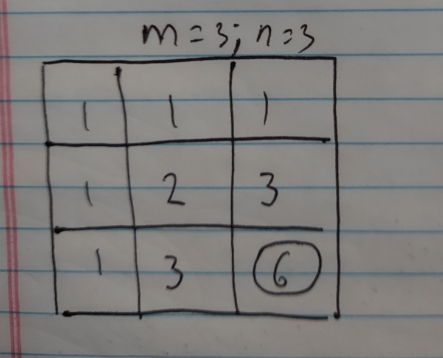 m=3; n=3
1 1 1
1 2 3
1 3 6